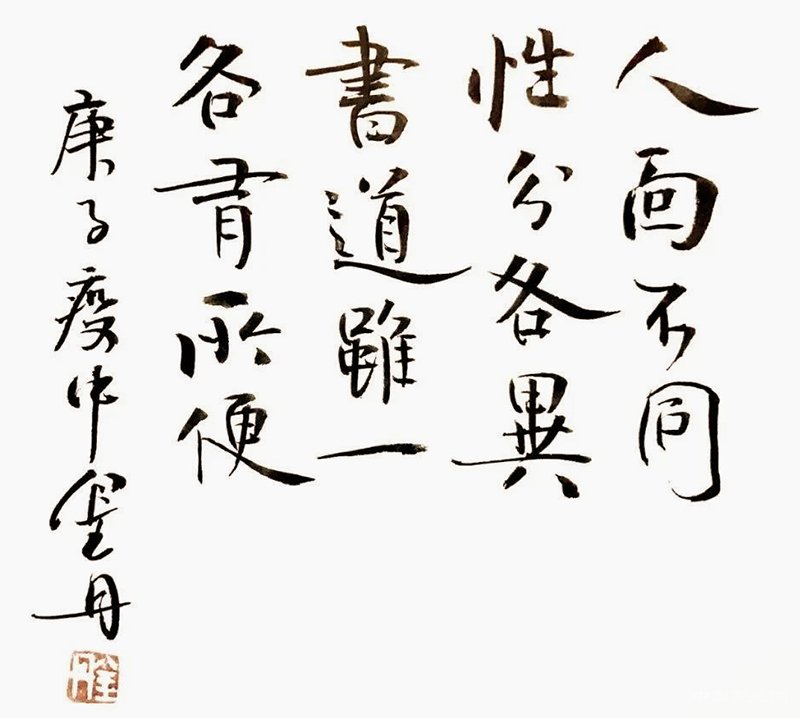 人面不同
性分各異
書道雖一
各有所便
庚子疫中丹